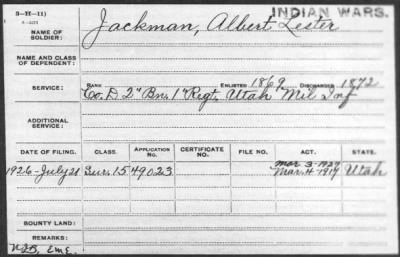 3-H-11)
INDIAN WARS.
NAME OF SOLDIER: Jackman, Albert Lester
NAME AND CLASS OF DEPENDENT:
SERVICE: RANK ENLISTED 1869 DISCHARGED 1872
Co. D 2" Bn. 1" Regt. Utah Mil Inf
ADDITIONAL SERVICE:
DATE OF FILING. CLASS. APPLICATION NO. CERTIFICATE NO. FILE NO. ACT. STATE.
Mar 3-1927
1926-July 21 Sur. 1549023 Mar. 4-1917 Utah
BOUNTY LAND:
REMARKS: